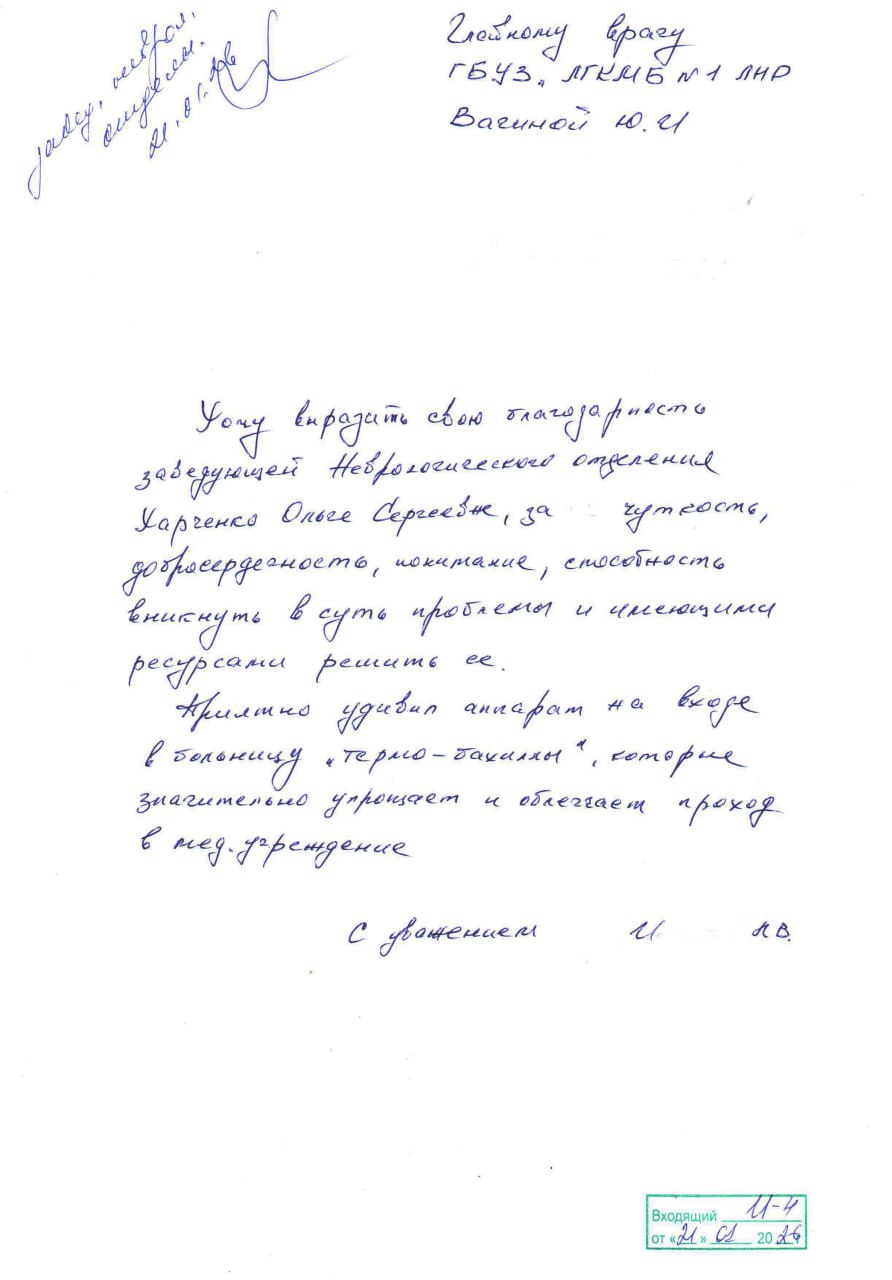 завед. неврол.
отделен.
21.01.26
Главному врачу
ГБУЗ "ЛГКМБ №1 ЛНР
Вагиной Ю.И
Хочу выразить свою благодарность
заведующей Неврологического отделения
Харченко Ольге Сергеевне, за чуткость,
добросердечность, понимание, способность
вникнуть в суть проблемы и имеющими
ресурсами решить ее.
Приятно удивил аппарат на входе
в больницу "термо-бахиллы", которые
значительно упрощает и облегчает проход
в мед. учреждение
С уважением И В.
Входящий И-4
от «21» 01 2026